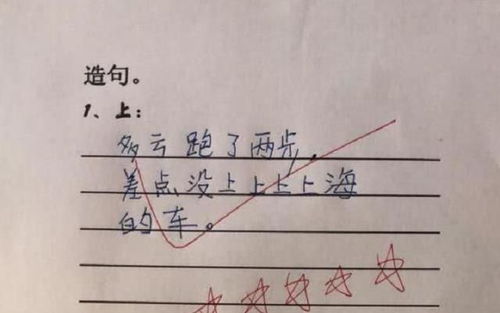 造句。
1、上:
多亏跑了两步,
差点没上上上上海
的车。